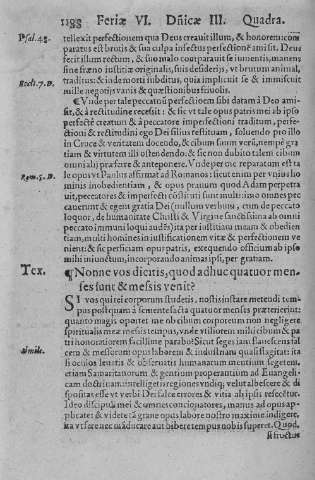 1188 Feriæ VI. Dñicæ III. Quadra.
Psal. 48.
tellexit perfectionem qua Deus creavit illum, & honorem: com
paratus est brutis & sua culpa infectus perfectionē amisit. Deus
fecit illum rectum, & suo malo comparavit se iumentis, manens
sine fræno iustitiæ originalis, suis desiderijs, vt brutum animal,
Eccli. 7. D.
traditus: & inde morti subditus, quia implicuit se & immiscuit
mille negotijs vanis & quæstionibus friuolis.
¶ Vnde per tale peccatū perfectionem sibi datam à Deo ami-
sit, & à rectitudine recessit: & sic vt tale opus patris mei ab ipso
perfectè creatum & à peccatore imperfectioni traditum, perfe-
ctioni & rectitudini ego Dei filius restituam, soluendo pro illo
in Cruce & veritatem docendo, & cibum suum verū, nempè gra
tiam & virtutem illi ostendendo, & se non dubito talem cibum
omni alij præferre & anteponere. Vnde per me reparatum est ta
Rom. 5. D.
le opus vt Paulus affirmat ad Romanos: sicut enim per vnius ho
minis inobedientiam, & opus prauum quod Adam perpetra
uit, peccatores & imperfecti cōstituti sunt multi: imo omnes pec
cauerunt & egent gratia Dei: multum verbum, cum de peccato
loquor, de humanitate Christi & Virgine sanctissima ab omni
peccato immuni loqui audeā) ita per iustitiam meam & obedien
tiam, multi homines in iustificationem vitæ & perfectionem ve
nient: & sic perficiam opus patris, exequendo officium ab ipso
mihi iniunctum, incorporando animas ipsi, per gratiam.
Tex.
¶ Nonne vos dicitis, quod adhuc quatuor men-
ses sunt & messis venit?
SI vos qui rei corporum studetis, nostis instare metendi tem-
pus postquam à semente facta quatuor menses præterierint:
quanto magis oportet me ob cibum corporeum non negligere
spiritualis meæ messis tempus, vnde vtiliorem mihi cibum & pa
tri honoratiorem facillime parabo? Sicut seges iam flauescens ta
Simile.
cem & messorum opus laborem & industriam qualis flagitat ita
si oculos leuatis & obseruatis humanarum mentium segetem,
etiam Samaritanorum & gentium properantium ad Euangeli-
cam doctrinam intelligetis regiones vndiq; velut albescere & di
spositas esse vt verbi Dei falce errores & vitia ab ipsis resecētur.
Ideo discipuli mei & omnes concionatores, manus ad opus ap-
plicate: & videte tā grane opus labore nostro maximè indigere,
ita vt ferè nec māducare aut bibere tempus nobis superet. Quod,
si fructus